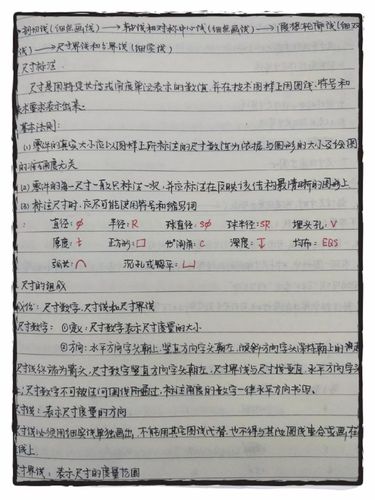 剖切线(细点画线) → 轴线和对称中心线(细点画线) → 假想轮廓线(细双
线) → 尺寸界线和尺寸线(细实线)
尺寸标注:
尺寸是用特定长度或角度单位表示的数值,并在技术图样上用图线、符号和
技术要求表示出来。
基本法则:
(1) 零件的真实大小应以图样上所标注的尺寸数值为依据,与图形的大小及绘图
的准确度无关
(2) 零件的每一尺寸一般只标注一次,并应标注在反映该结构最清晰的图形上
(3) 标注尺寸时,应尽可能使用符号和缩写词
直径: φ 半径: R 球直径: Sφ 球半径: SR 埋头孔: V
厚度: t 正方形: □ 45°倒角: C 深度: ↧ 均布: EQS
弧长: ⌒ 沉孔或锪平: ⌴
尺寸的组成
成份: 尺寸数字、尺寸线和尺寸界线
尺寸数字: ①意义: 尺寸数字表示尺寸度量的大小
②方向: 水平方向字头朝上,竖直方向字头朝左,倾斜方向字头保持朝上的
尺寸线终端为箭头,尺寸数字竖直方向字头朝左,尺寸界线与尺寸线垂直,水平方向字头
上;尺寸数字不可被任何图线所通过,标注角度的数字一律水平方向书写。
尺寸线: 表示尺寸度量的方向
尺寸线必须用细实线单独画出,不能用其它图线代替,也不得与其他图线重合或画在
线上。
尺寸界线: 表示尺寸的度量范围